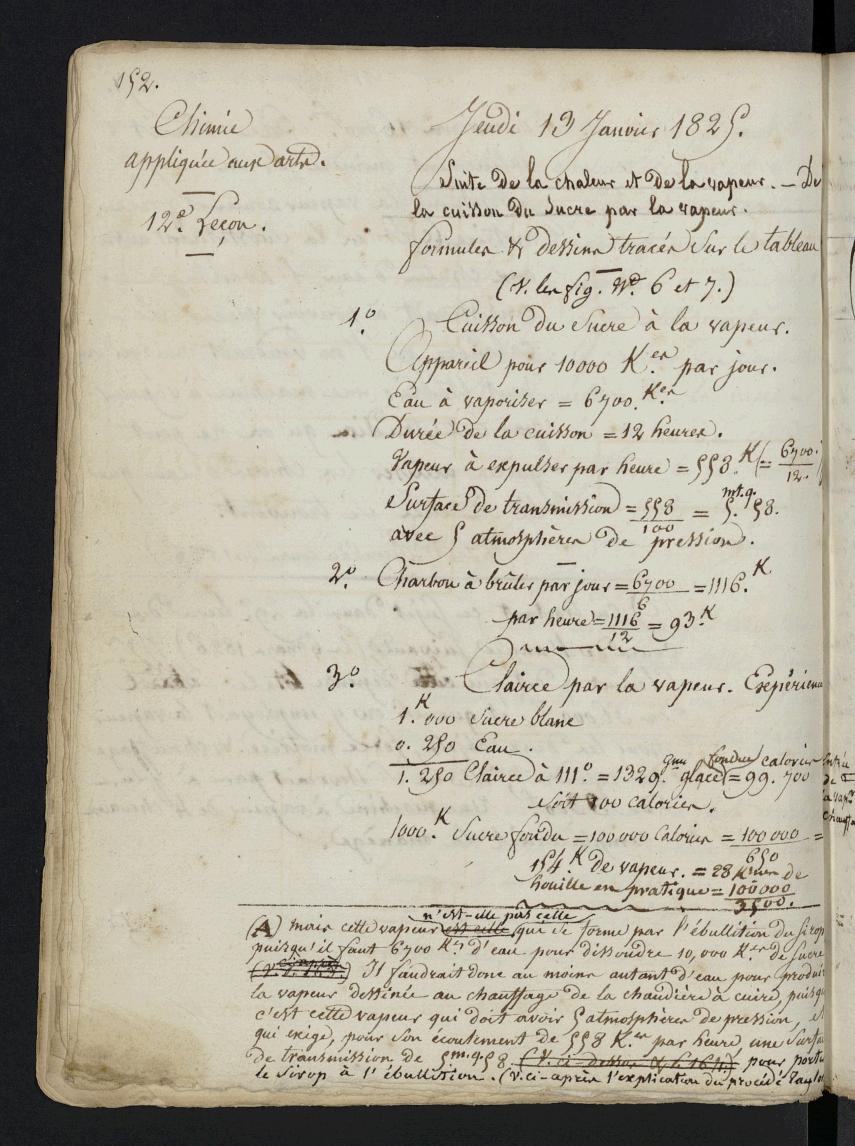 152.
Chimie
appliquée aux arts.
12.e Leçon.
Jeudi 13 Janvier 1825.
Suite de la chaleur et de la vapeur. — De
la cuisson du Sucre par la vapeur.
formules & dessins tracés sur le tableau
(V. les fig. N.os 6 et 7.)
1.o Cuisson du Sucre à la vapeur.
Appareil pour 10000 K.es par jour.
Eau à vaporiser = 6700. K.es
Durée de la cuisson = 12 heures.
Vapeur à expulser par heure = 558. K (= 6700. / 12.)
Surface de transmission = 558 / 100 = 5. mt.q. 58.
avec 5 atmosphères de pression.
2.o Charbon à brûler par jour = 6700 / 6 = 1116. K
par heure = 1116 / 12 = 93. K
3.o Clairce par la vapeur. Expérience
1. K 000 Sucre blanc
0. 250 Eau.
1. 250 Clairce à 111.o = 1329. gmes glace fondue = 99. 700 calories
soit 100 calories.
1000. K Sucre fondu = 100 000 Calories = 100 000 / 650 =
154 K de vapeur. = 28 K de
houille en pratique = 100 000 / 3500.
(A) mais cette vapeur est-elle n'est-elle pas celle qui se forme par l'ébullition du sirop
puisqu'il faut 6700 K.es d'eau pour dissoudre 10,000 K.es de Sucre
Il faudrait donc au moins autant d'eau pour produire
la vapeur destinée au chauffage de la chaudière à cuire, puisque
c'est cette vapeur qui doit avoir 5 atmosphères de pression, et
qui exige, pour son écoulement de 558 K.es par heure, une Surface
de transmission de 5 m.q 58 (V. ci-dessus) pour porter
le Sirop à l'ébullition. (V. ci-après l'explication du procédé Taylor